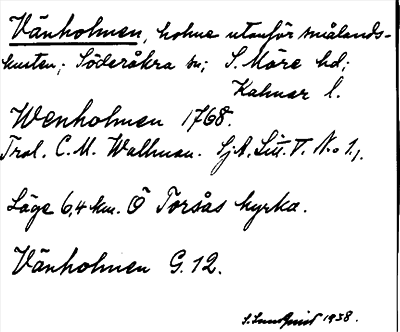 Vänholmen, holme utanför smålands-
kusten; Söderåkra sn; S. Möre hd;
Kalmar l.
Wenholmen 1768.
Trol. C. M. Wallman. SjA, Litt. V. No 1,.
Läge 6,4 km. Ö Torsås kyrka.
Vänholmen G. 12.
S. Lundquist 1938.